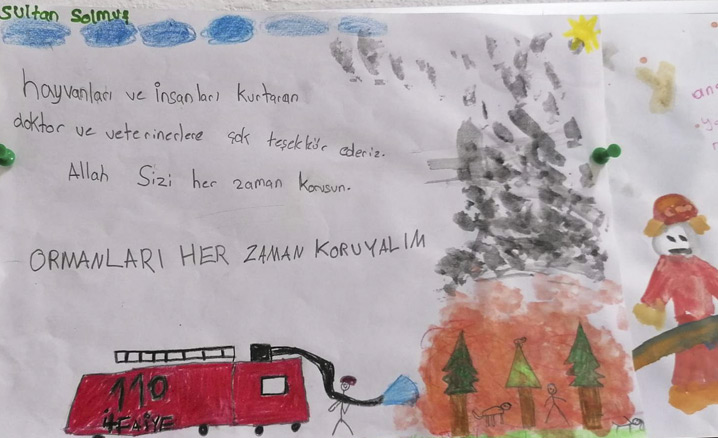 Sultan Solmuş
hayvanları ve insanları kurtaran
doktor ve veterinerlere çok teşekkür ederiz.
Allah Sizi her zaman Korusun.
ORMANLARI HER ZAMAN KORUYALIM
110
İTFAİYE